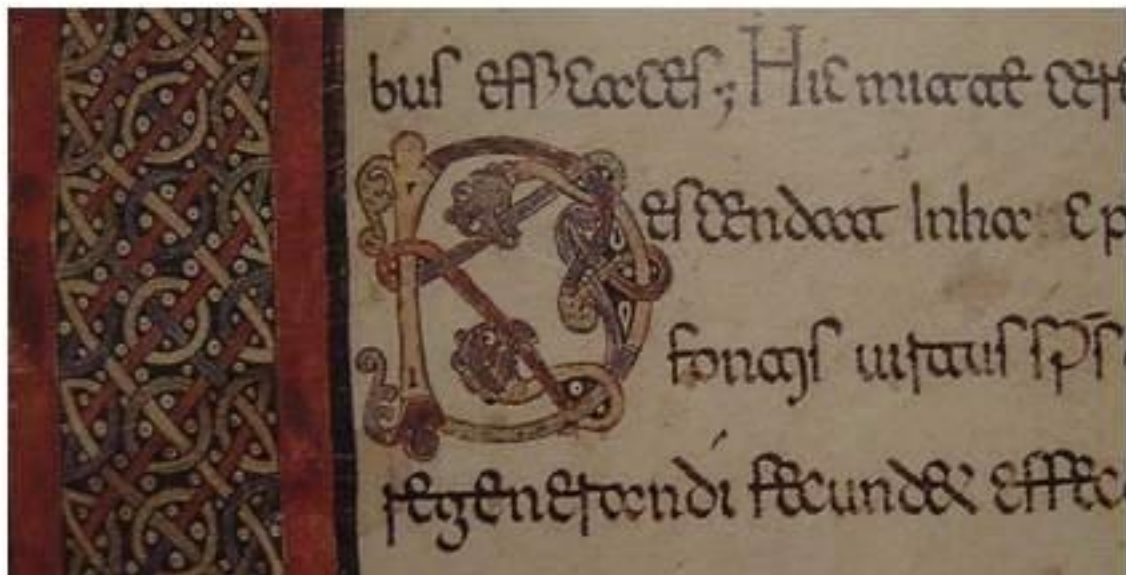 bus efficaces; Hic mittat cer
Descendat In hac p
fontis uirtus sp̅s
regenerandi fecundet effec